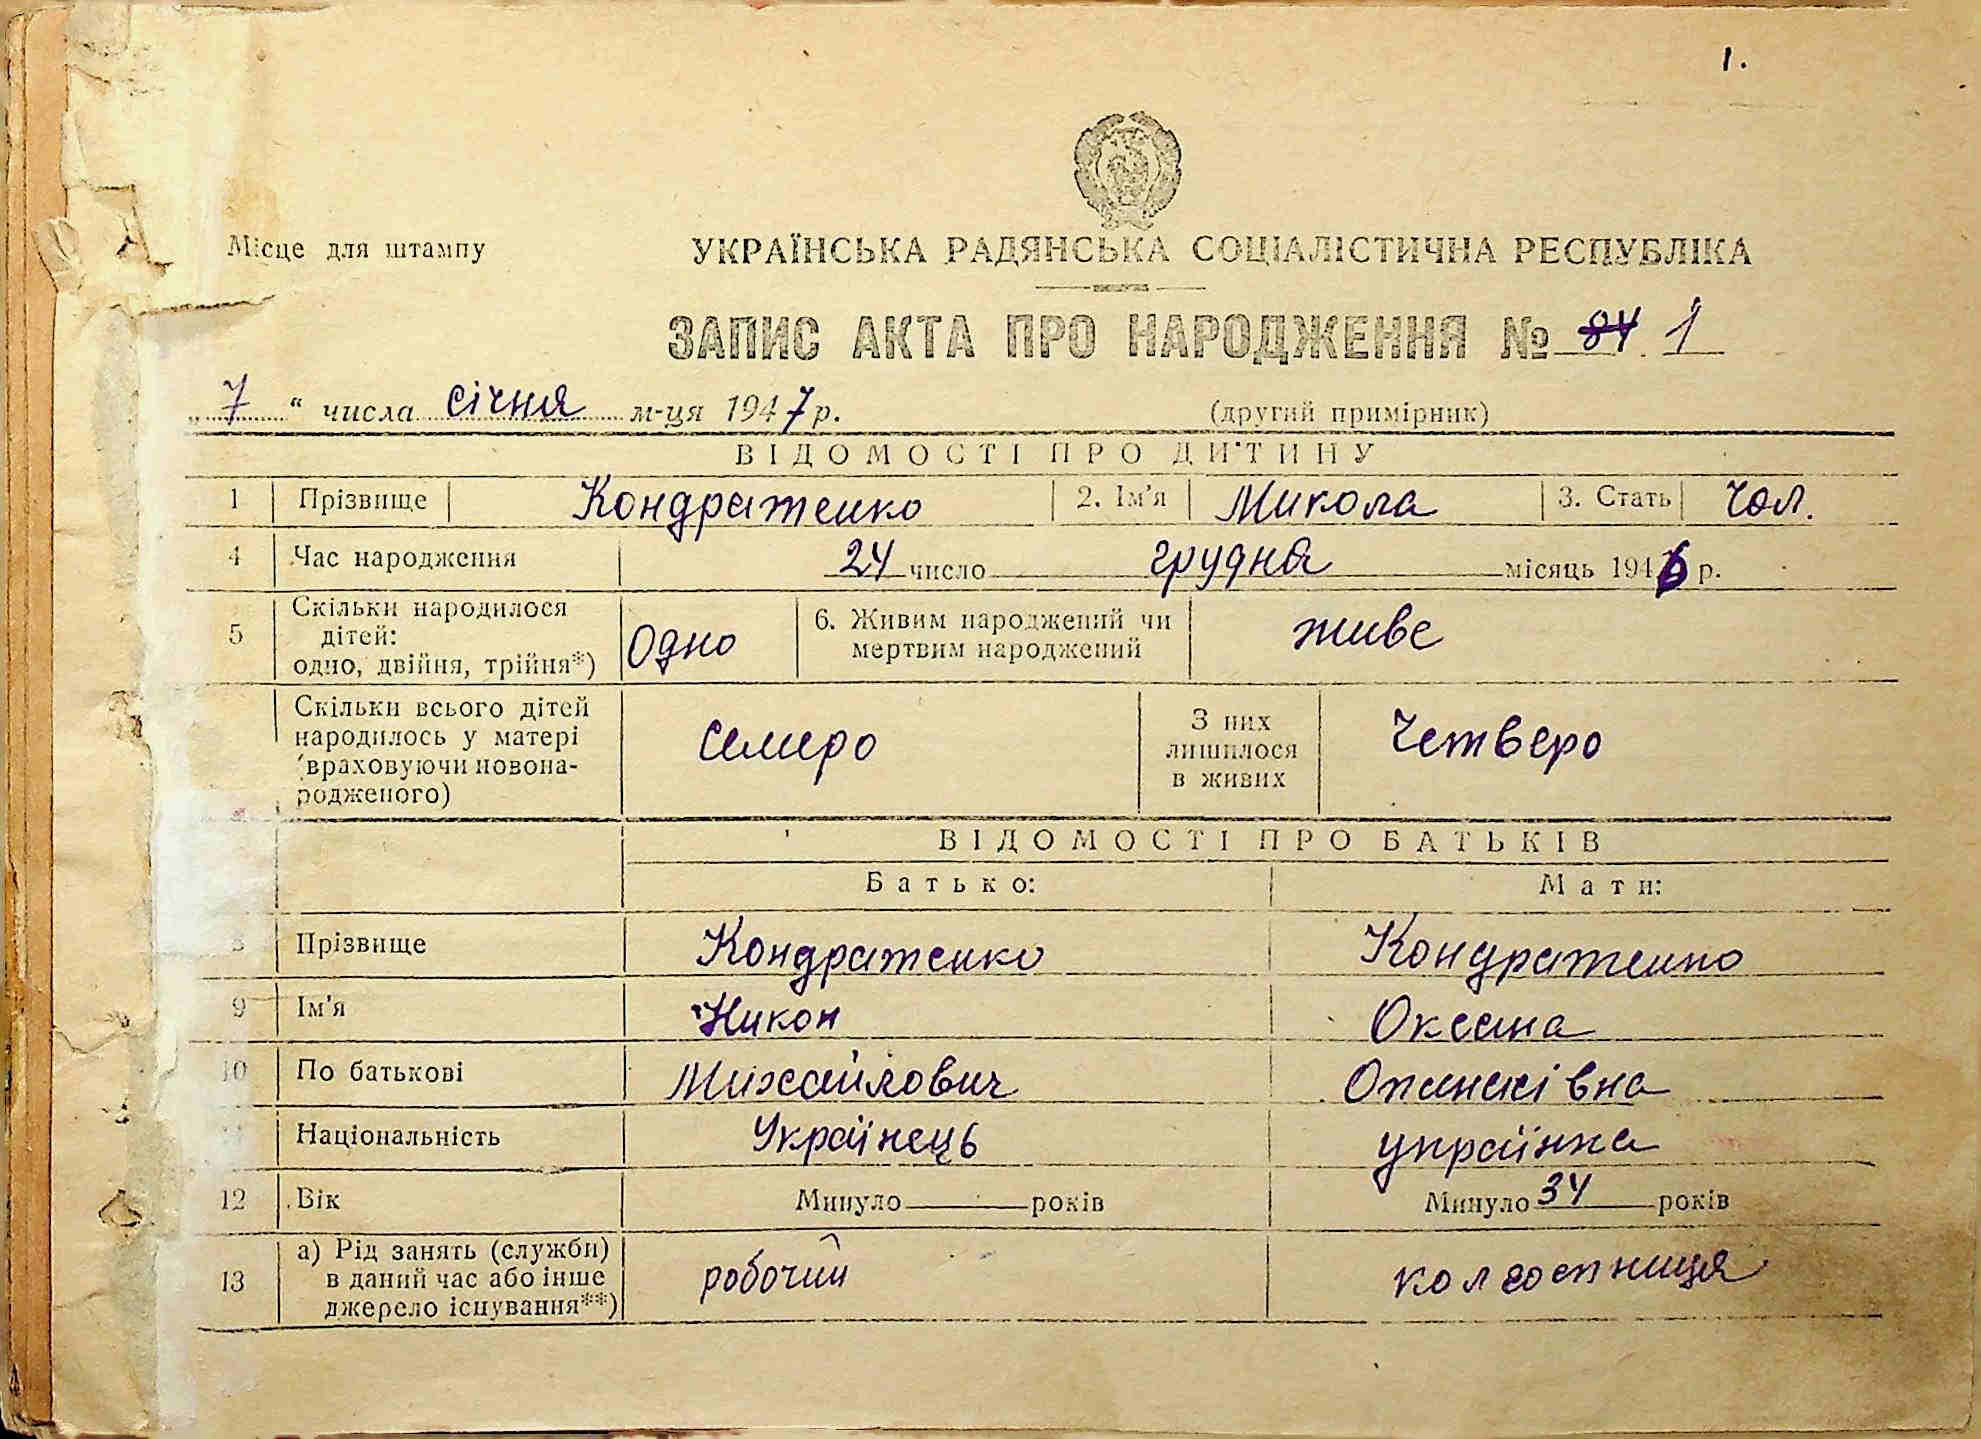 1.
Місце для штампу
УКРАЇНСЬКА РАДЯНСЬКА СОЦІАЛІСТИЧНА РЕСПУБЛІКА
ЗАПИС АКТА ПРО НАРОДЖЕННЯ № 84 1
„7“ числа січня м-ця 1947 р. (другий примірник)
ВІДОМОСТІ ПРО ДИТИНУ
1 Прізвище Кондратенко 2. Ім'я Микола 3. Стать Чол.
4 Час народження 24 число грудня місяць 1946 р.
5 Скільки народилося дітей: одно, двійня, трійня*) Одно 6. Живим народжений чи мертвим народжений живе
Скільки всього дітей народилось у матері (враховуючи новонародженого) Семеро З них лишилося в живих Четверо
ВІДОМОСТІ ПРО БАТЬКІВ
Батько: Мати:
8 Прізвище Кондратенко Кондратенко
9 Ім'я Никон Оксана
10 По батькові Михайлович Опанасівна
Національність Українець українка
12 Вік Минуло років Минуло 34 років
13 а) Рід занять (служби) в даний час або інше джерело існування**) робочий колгоспниця